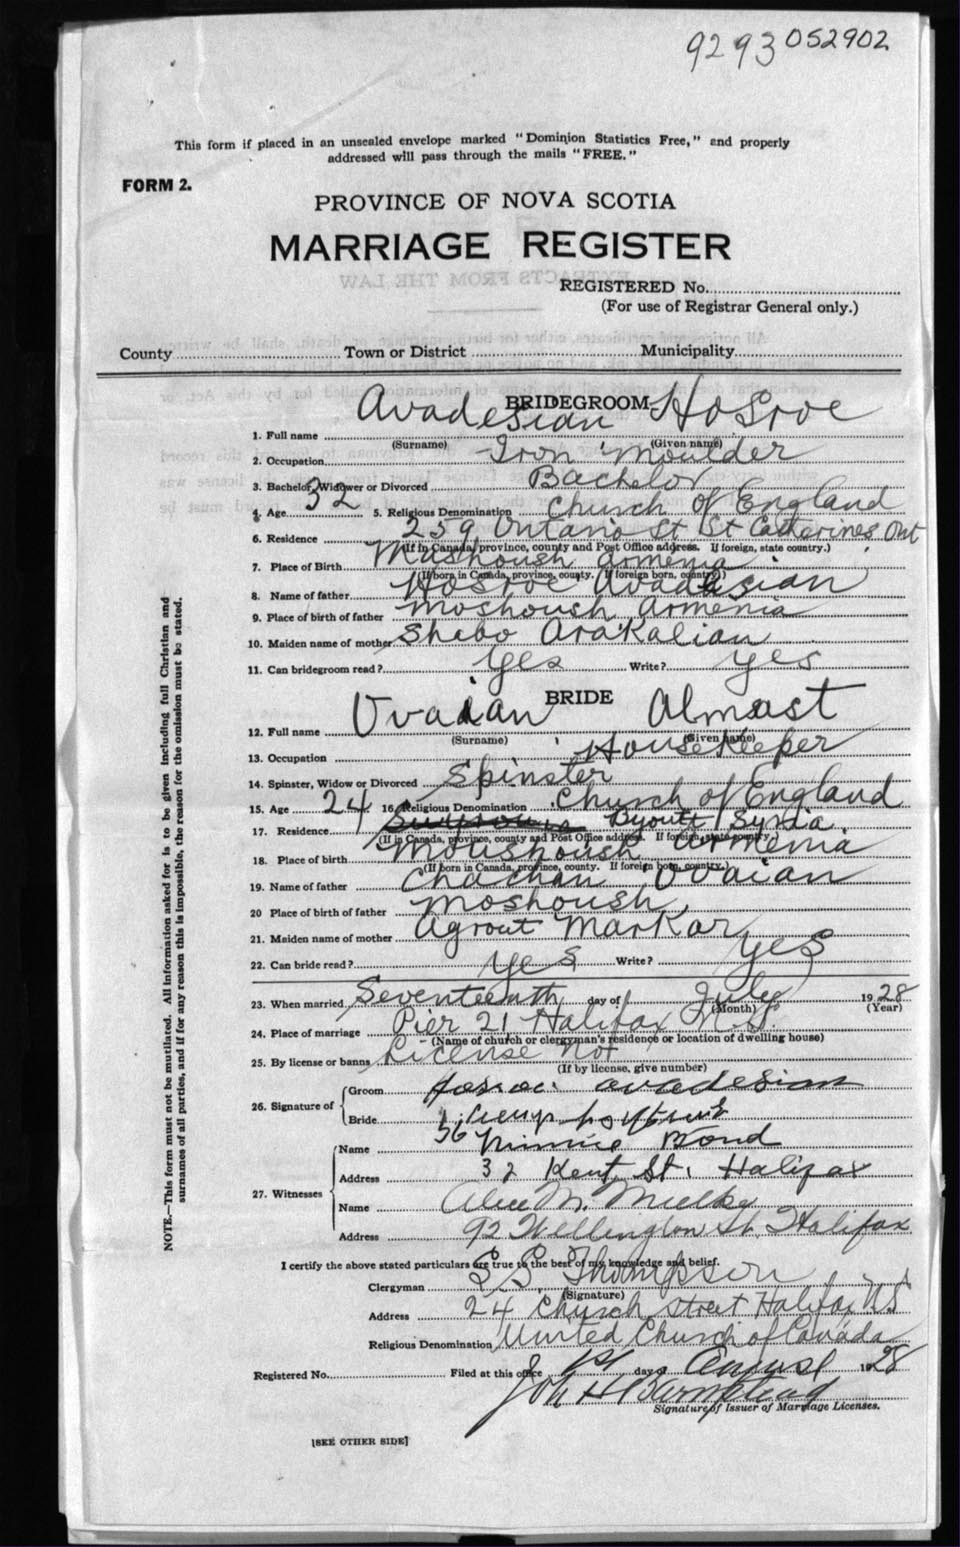 9293 052902
This form if placed in an unsealed envelope marked "Dominion Statistics Free," and properly
addressed will pass through the mails "FREE."
FORM 2.
PROVINCE OF NOVA SCOTIA
MARRIAGE REGISTER
EXTRACTS FROM THE LAW
REGISTERED No.
(For use of Registrar General only.)
County Town or District Municipality
BRIDEGROOM
1. Full name Avadesian Hosroe
(Surname) (Given name)
2. Occupation Iron Moulder
3. Bachelor, Widower or Divorced Bachelor
4. Age 32 5. Religious Denomination Church of England
6. Residence 259 Ontario St St Catherines Ont
(If in Canada, province, county and Post Office address. If foreign, state country.)
7. Place of Birth Moshoush Armenia
(If born in Canada, province, county. If foreign born, country.)
8. Name of father Hosroe Avadesian
9. Place of birth of father Moshoush Armenia
10. Maiden name of mother Shabo Arakalian
11. Can bridegroom read? Yes Write? Yes
BRIDE
12. Full name Ovaian Almast
(Surname) (Given name)
13. Occupation Housekeeper
14. Spinster, Widow or Divorced Spinster
15. Age 24 16. Religious Denomination Church of England
17. Residence Byoutt Syria
(If in Canada, province, county and Post Office address. If foreign, state country.)
18. Place of birth Moushoush Armenia
(If born in Canada, province, county. If foreign born, country.)
19. Name of father Chachan Ovaian
20 Place of birth of father Moshoush
21. Maiden name of mother Agrout Markar
22. Can bride read? Yes Write? Yes
23. When married Seventeenth day of July 1928
(Month) (Year)
24. Place of marriage Pier 21, Halifax N.S.
(Name of church or clergyman's residence or location of dwelling house)
25. By license or banns License No
(If by license, give number)
26. Signature of
Groom Hosroe avadesian
Bride
27. Witnesses
Name Minnie Bond
Address 32 Kent St. Halifax
Name Alice M. Mielke
Address 92 Wellington St. Halifax
I certify the above stated particulars are true to the best of my knowledge and belief.
Clergyman Thompson
(Signature)
Address 24 Church street Halifax N.S
Religious Denomination United Church of Canada
Registered No. Filed at this office 1st day August 1928
Signature of Issuer of Marriage Licenses.
[SEE OTHER SIDE]
NOTE.—This form must not be mutilated. All information asked for is to be given including full Christian and
surnames of all parties, and if for any reason this is impossible, the reason for the omission must be stated.